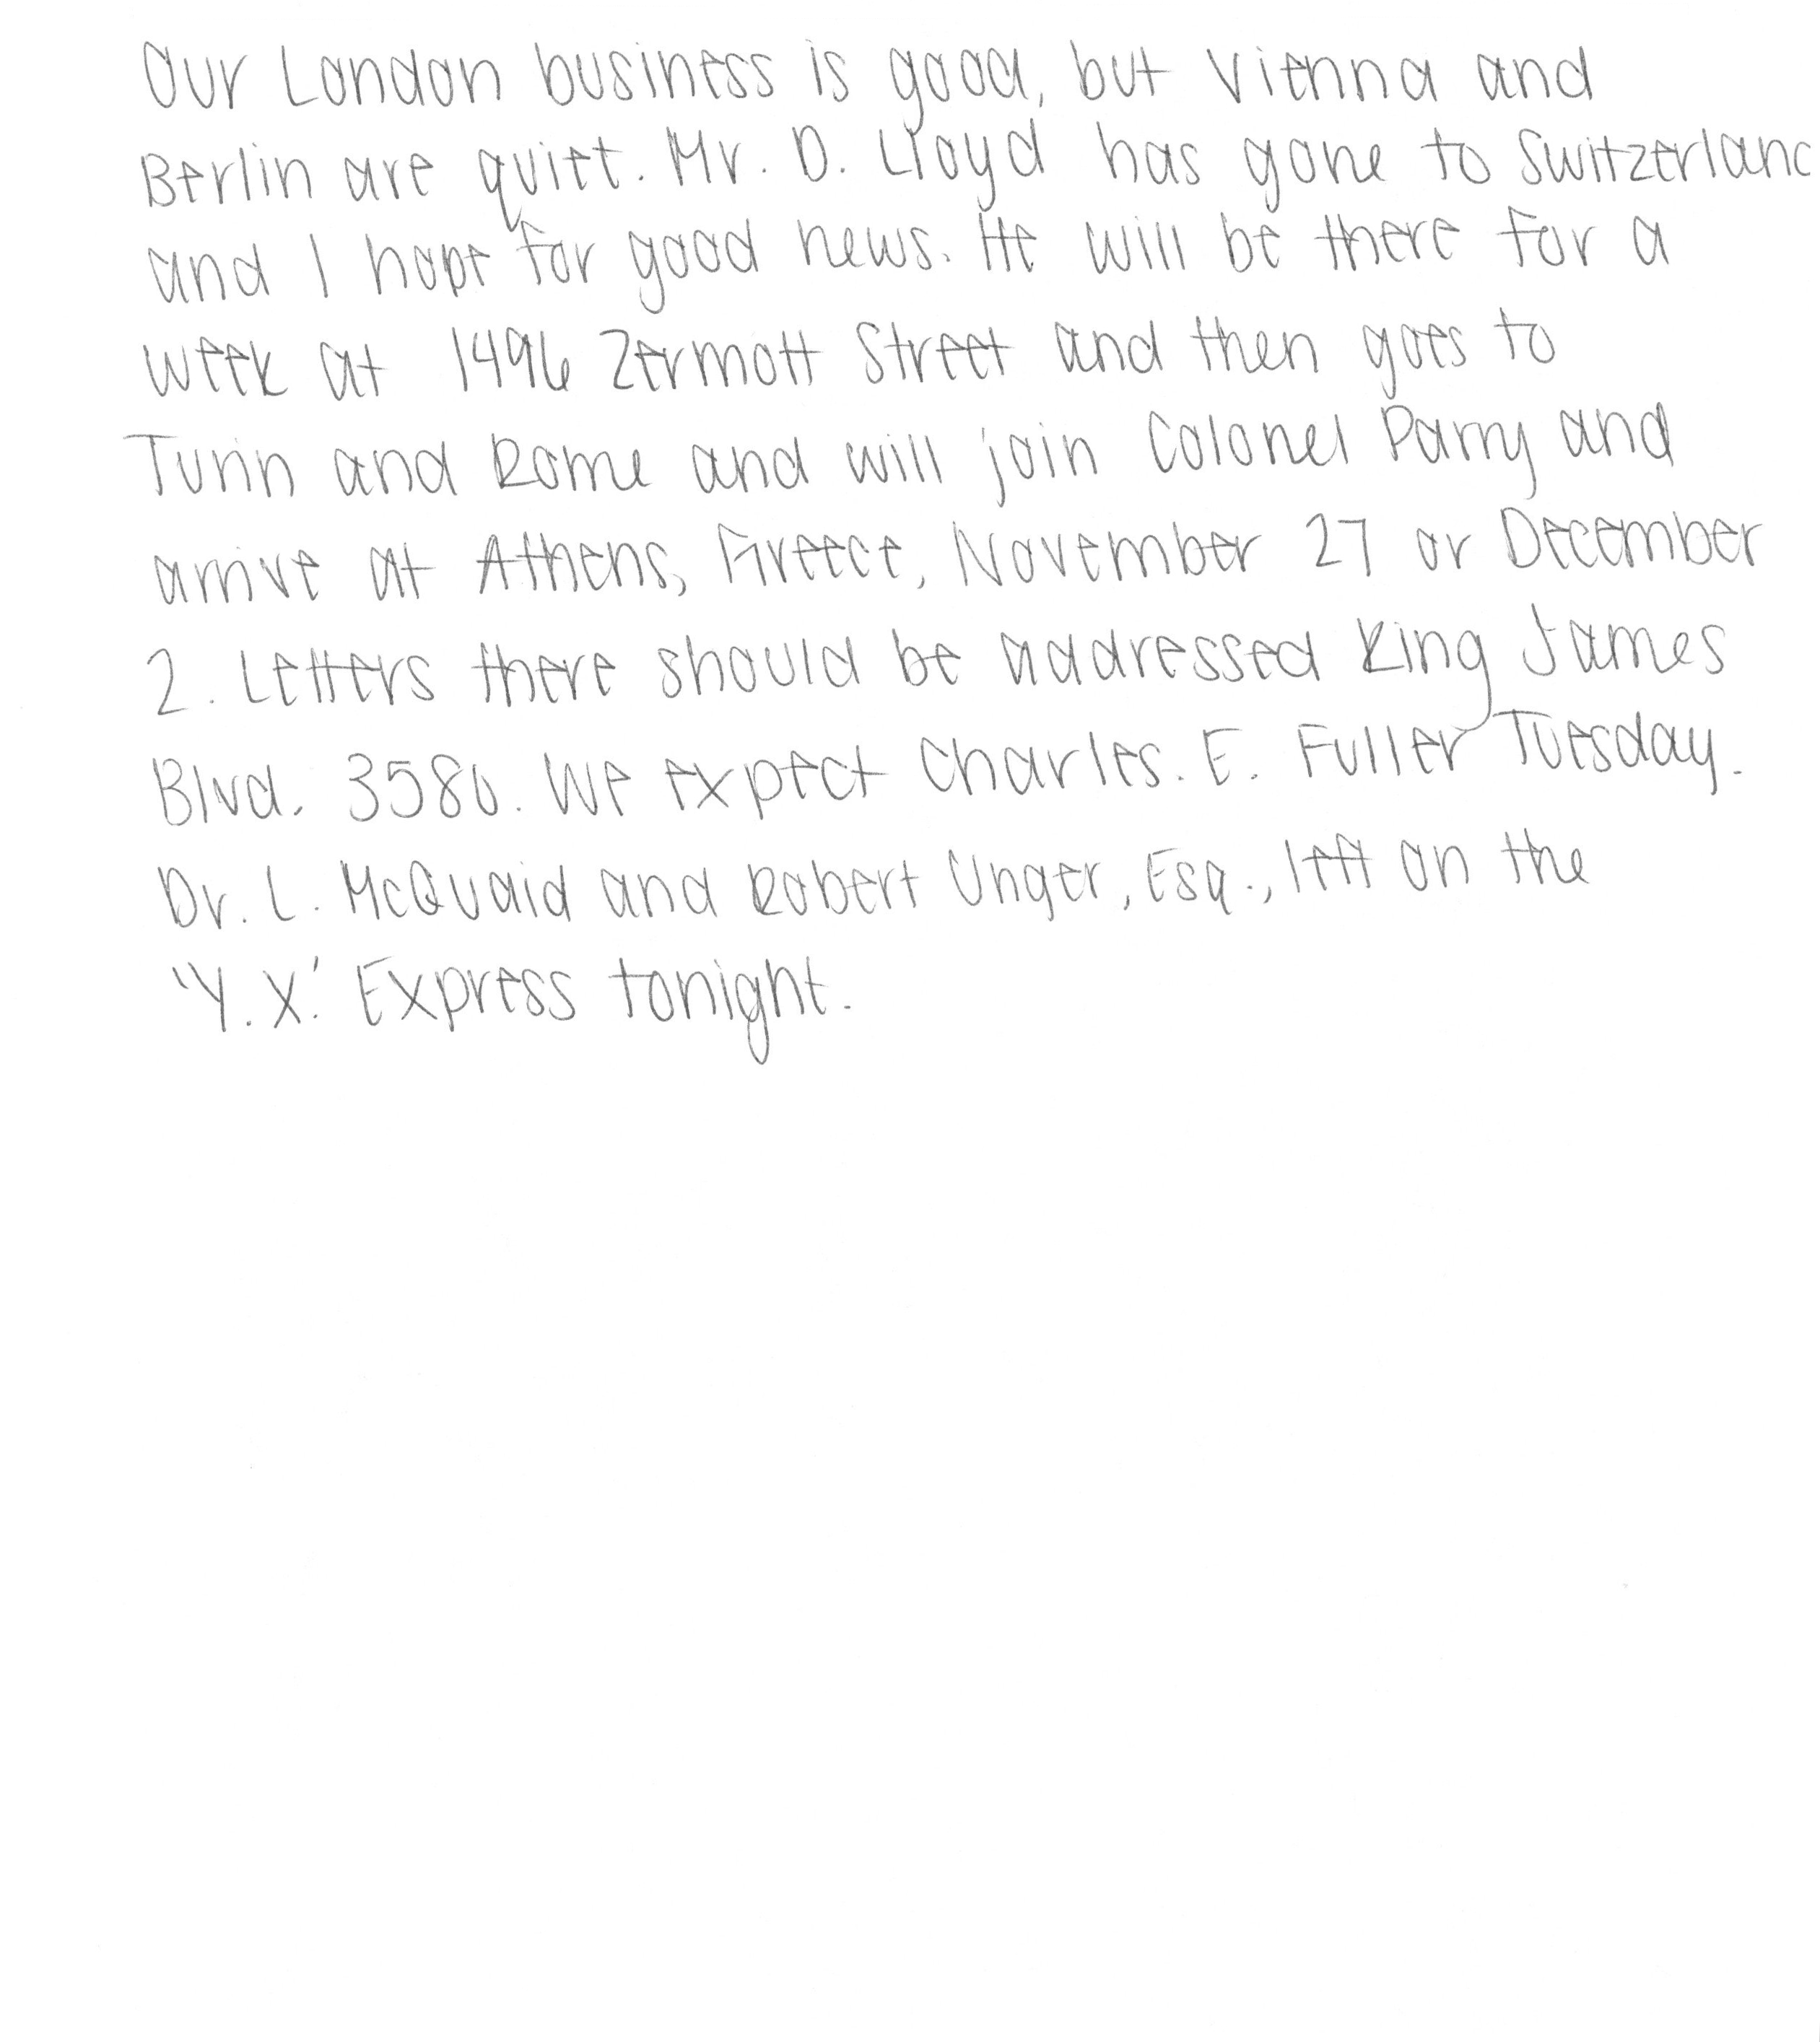 Our London business is good, but Vienna and
Berlin are quiet. Mr. D. Lloyd has gone to Switzerland
and I hope for good news. He will be there for a
week at 1496 Zermott Street and then goes to
Turin and Rome and will join Colonel Parry and
arrive at Athens, Greece, November 27 or December
2. Letters there should be addressed King James
Blvd. 3580. We expect Charles. E. Fuller Tuesday.
Dr. L. McQuaid and Robert Unger, Esq., left on the
'Y.X.' Express tonight.